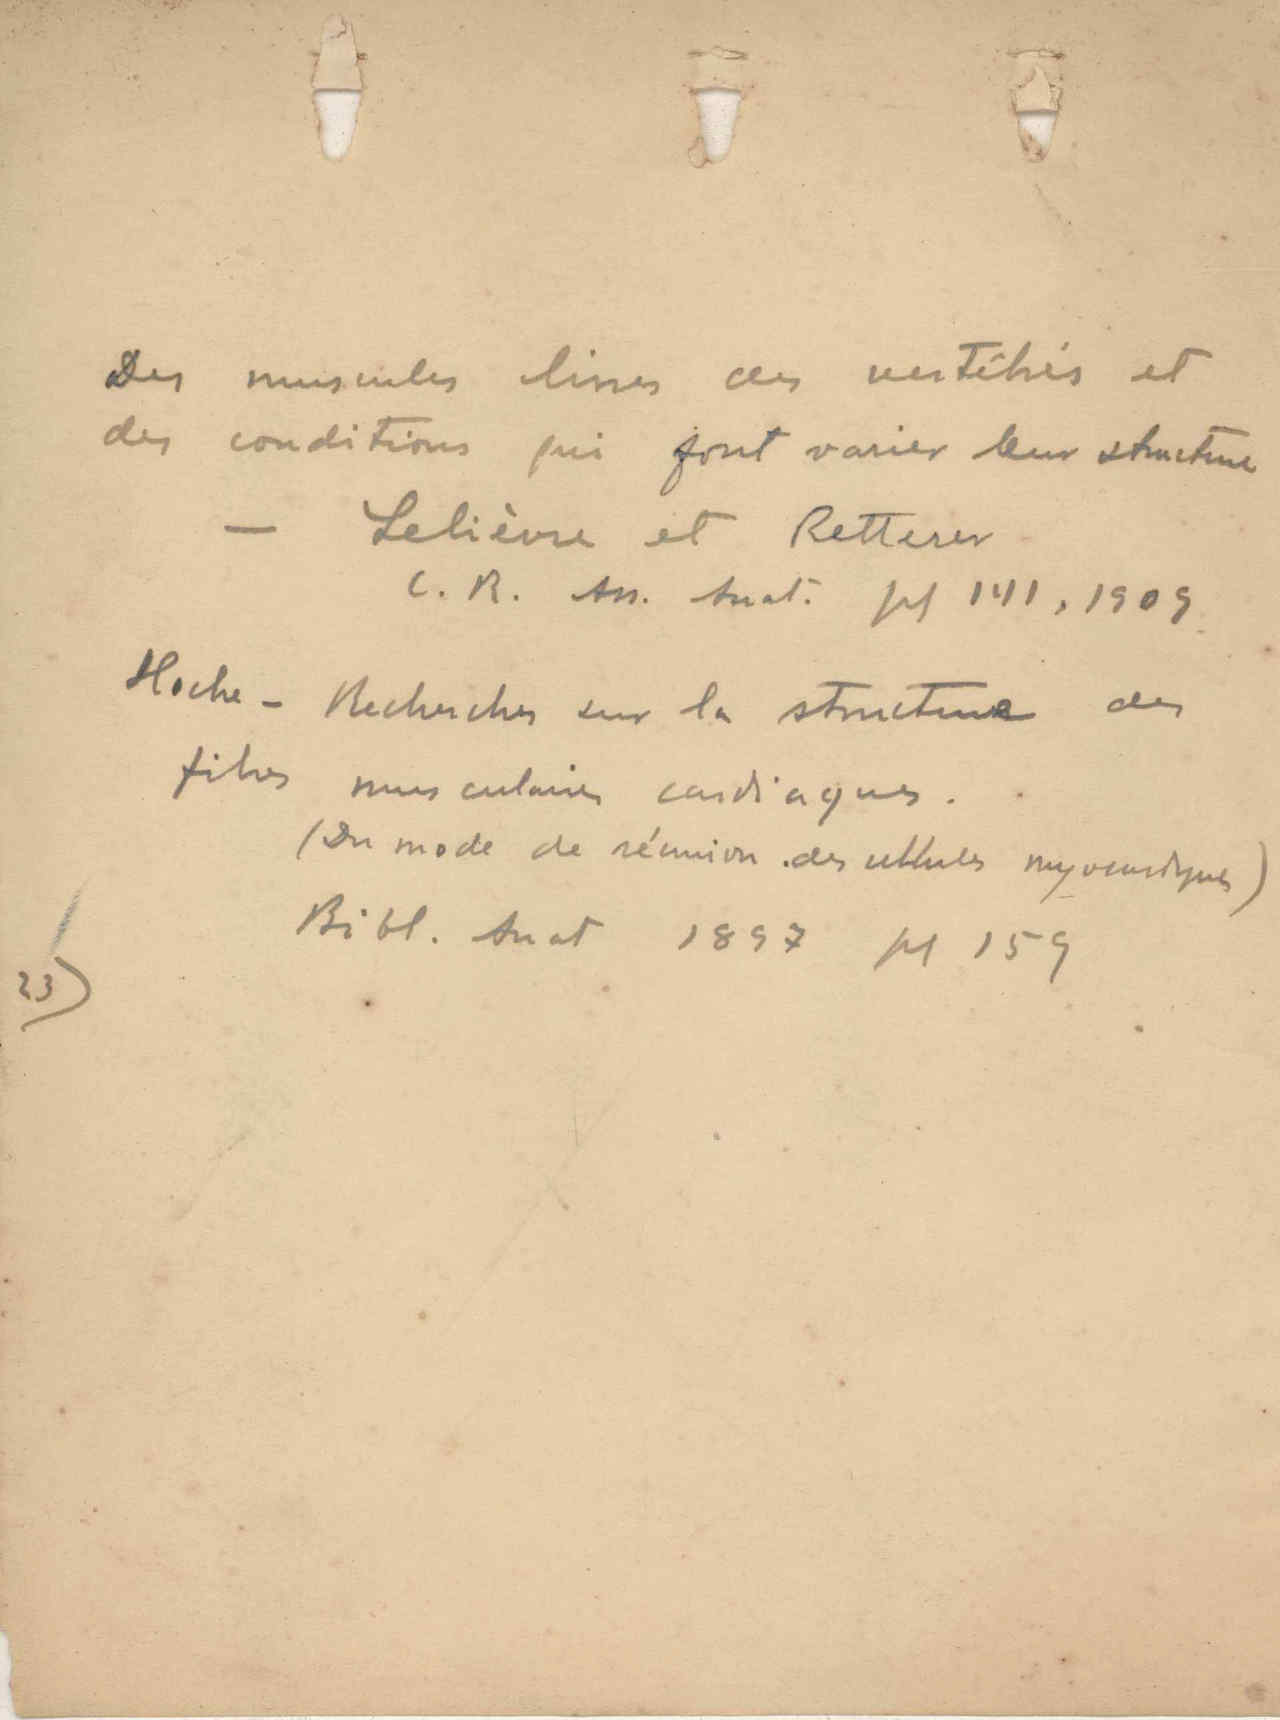 Des muscles lisses des vertébrés et
des conditions qui font varier leur structure
— Lelièvre et Retterer
C. R. Ass. Anat. pg 141, 1909
Hoche - Recherches sur la structure des
fibres musculaires cardiaques.
(Du mode de réunion des cellules myocardiques)
Bibl. Anat 1897 pg 159
23)